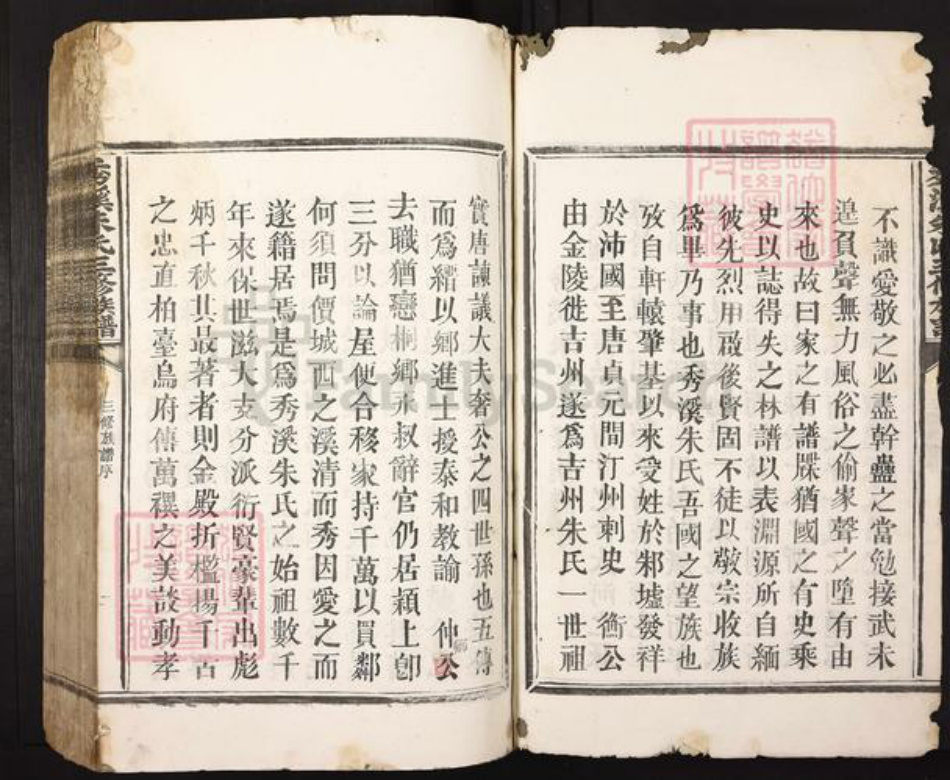 不識愛敬之必盡幹蠱之當勉接武未
遑負聲無力風俗之偷家聲之墮有由
來也故曰家之有譜牒猶國之有史乘
史以誌得失之林譜以表淵源所自緬
彼先烈用啟後賢固不徒以敬宗收族
爲畢乃事也秀溪朱氏吾國之望族也
攷自軒轅肇基以來受姓於邾墟發祥
於沛國至唐貞元間汀州刺史 衡公
由金陵徙吉州遂爲吉州朱氏一世祖
實唐諫議大夫奢公之四世孫也五傳
而爲纙以鄉進士授泰和教諭 仲公
去職猶戀桐鄉永叔辭官仍居潁上卽
三分以論屋便合移家持千萬以買鄰
何須問價城西之溪清而秀因愛之而
遂籍居焉是爲秀溪朱氏之始祖數千
年來保世滋大支分派衍賢豪輩出彪
炳千秋其最著者則金殿折檻揚千古
之忠直柏臺烏府傳萬禩之美談動孝
秀溪朱氏三修族譜
三修族譜序
FamilySearch